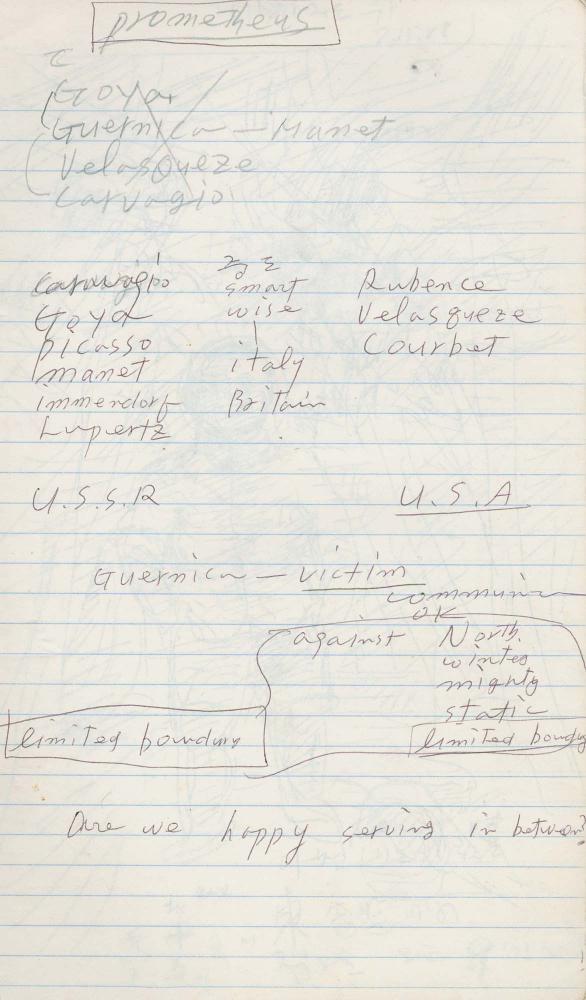 prometheus
Goya
Guernica — Manet
Velasqueze
Carvagio
Caravagio
Goya
picasso
manet
immendorf
Lupertz
smart
wise
italy
Britain
Rubence
Velasqueze
Courbet
U.S.S.R
U.S.A
Guernica — victim
OK
against North.
mighty
static
limited boundry
limited boundry
Are we happy serving in between?